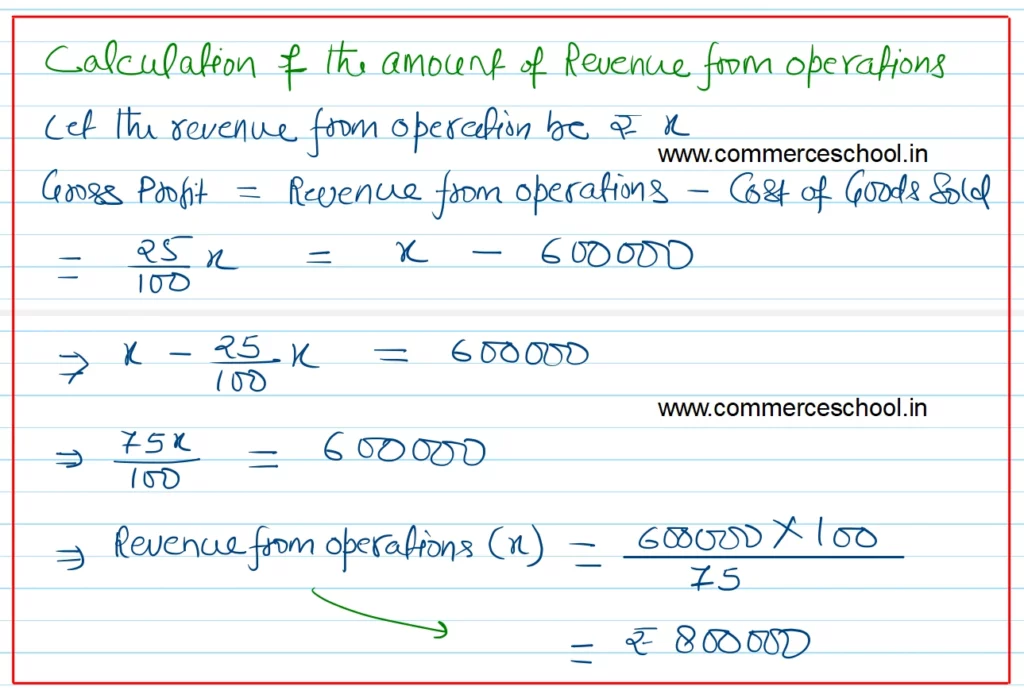 Calculation of the amount of Revenue from operations
Let the revenue from operation be ₹ x
www.commerceschool.in
Gross Profit = Revenue from operations - Cost of Goods Sold
= 25/100 x = x - 600000
⇒ x - 25/100 x = 600000
www.commerceschool.in
⇒ 75x/100 = 600000
⇒ Revenue from operations (x) = 600000 × 100 / 75
= ₹ 800000